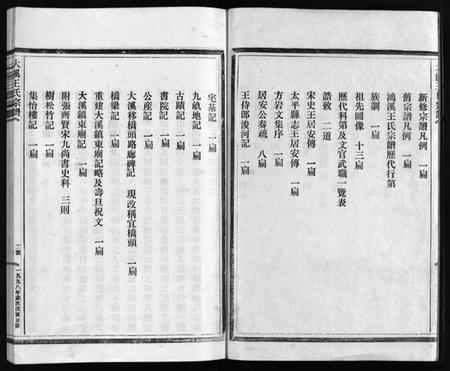 新修宗譜凡例 一扁
舊宗譜凡例 一扁
鴻溪王氏宗譜歷代行第
族訓 一扁
祖先圖像 十三扁
歷代科第及文官武職一覽表
誥敕 二道
宋史王居安傳 一扁
太平縣志王居安傳 一扁
方岩文集序 一扁
居安公奏疏 八扁
王侍郎浚河記 一扁
宅基記 一扁
九畝地記 一扁
古蹟記 一扁
書院記 一扁
公產記 一扁
大溪移橋頭路廊碑記 現改稱宜橋頭 一扁
橋梁記 一扁
重建大溪鎮東廟記略及壽旦祝文 一扁
大溪鎮東廟記 一扁
附張齊賢宋九尚書史料 三則
樹松竹記 一扁
集怡樓記 一扁
大溪王氏宗譜
二號
一九九八年歲次戊寅重修